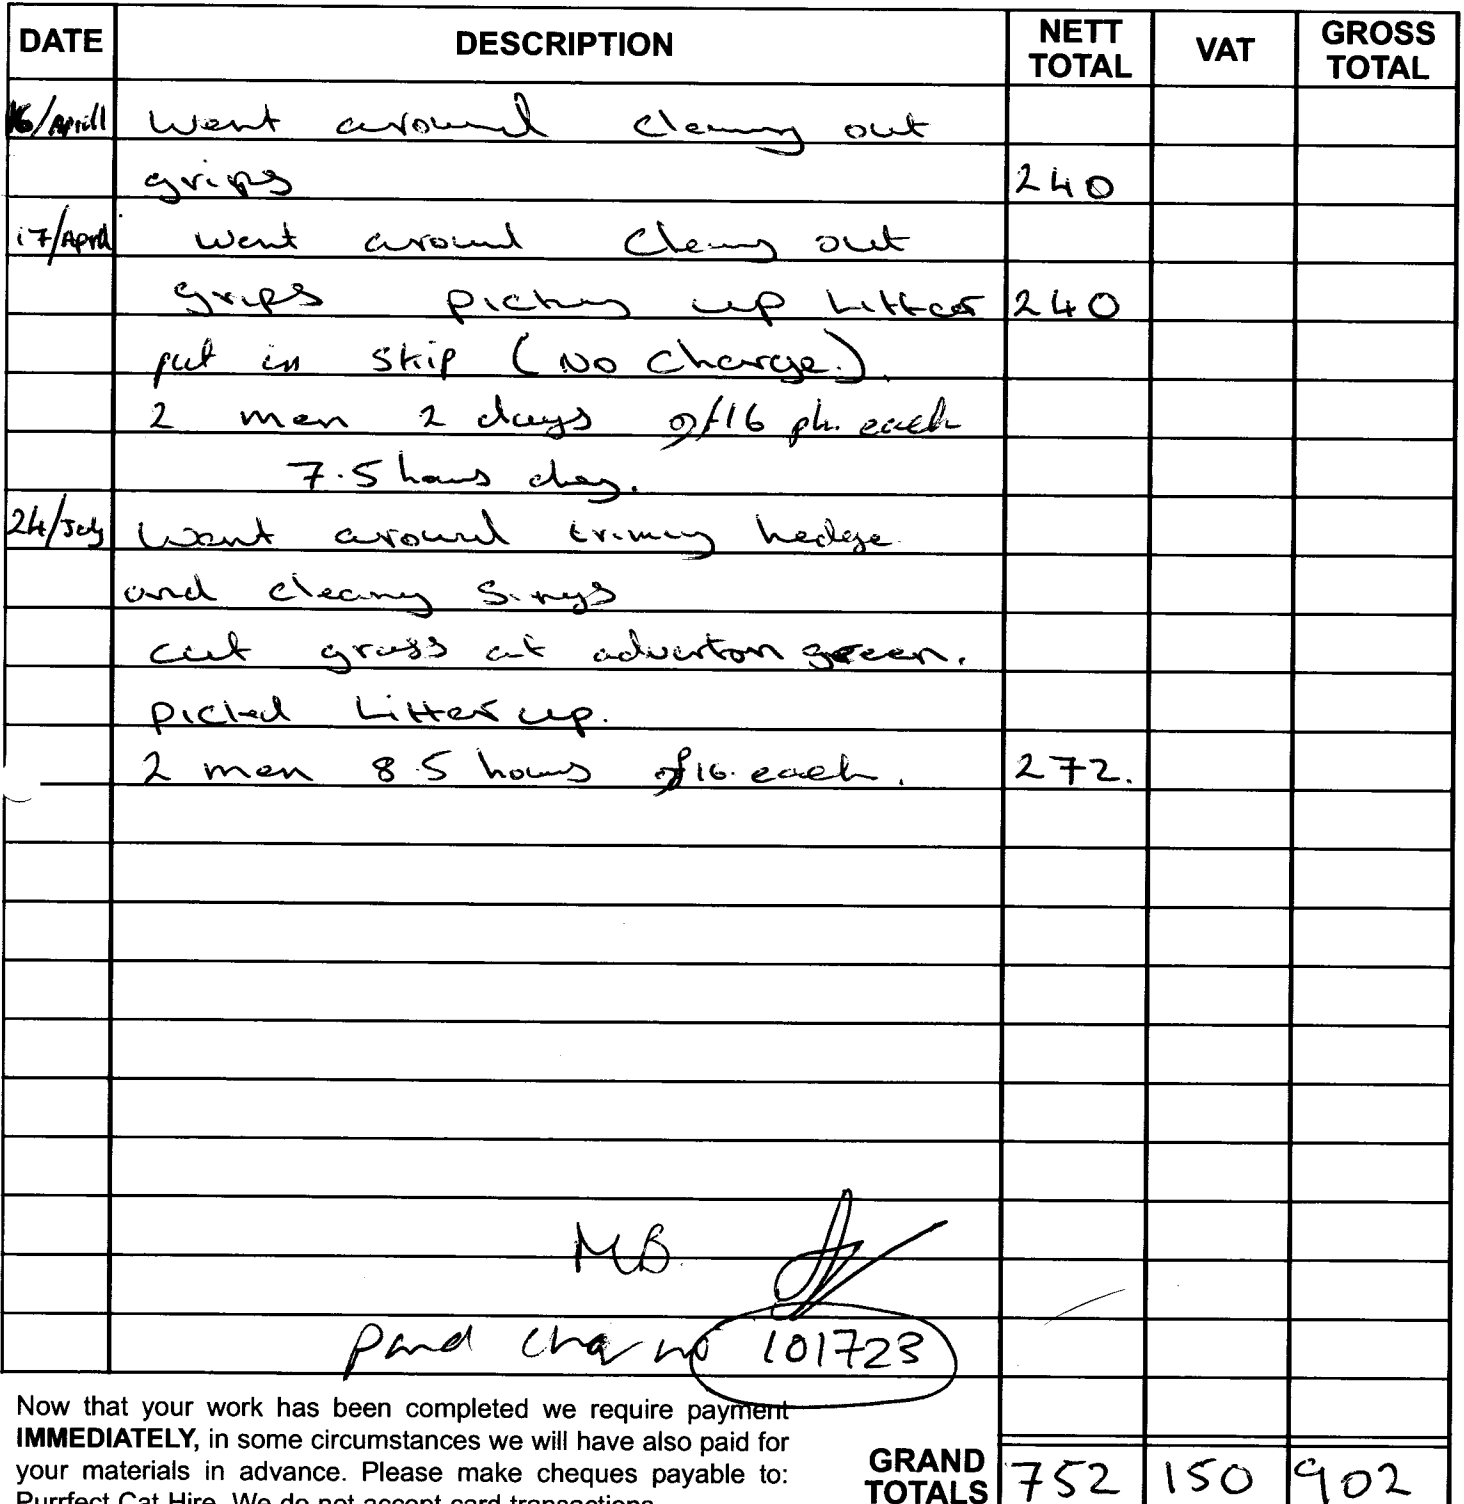 DATE DESCRIPTION NETT TOTAL VAT GROSS TOTAL
16/April Went around cleaning out
grips 240
17/April Went around cleaning out
grips picking up Litter 240
put in skip (No Charge.).
2 men 2 days of 16 ph. each
7.5 hours day.
24/July Went around triming hedge
and cleaning
cut grass at adverton green.
picked Litter up.
2 men 8.5 hours of 16. each. 272.
MB.
paid chq no 101723
Now that your work has been completed we require payment
IMMEDIATELY, in some circumstances we will have also paid for
your materials in advance. Please make cheques payable to:
Purrfect Cat Hire. We do not accept card transactions
GRAND TOTALS 752 150 902